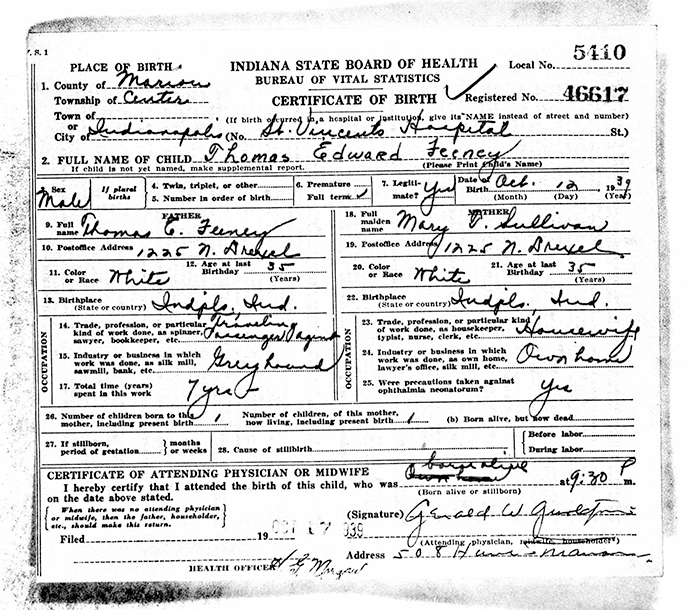 V. S. 1
PLACE OF BIRTH INDIANA STATE BOARD OF HEALTH Local No. 5410
1. County of Marion BUREAU OF VITAL STATISTICS
Township of Center CERTIFICATE OF BIRTH Registered No. 46617
Town of (If birth occurred in a hospital or institution, give its NAME instead of street and number)
or
City of Indianapolis (No. St. Vincents Hospital St.)
2. FULL NAME OF CHILD Thomas Edward Feeney
If child is not yet named, make supplemental report. (Please Print Child's Name)
Sex Male If plural births 4. Twin, triplet, or other 6. Premature 7. Legitimate? Yes Date of Birth Oct. 12 1939
5. Number in order of birth Full term ✓ (Month) (Day) (Year)
FATHER MOTHER
9. Full name Thomas E. Feeney 18. Full maiden name Mary V. Sullivan
10. Postoffice Address 1225 N. Drexel 19. Postoffice Address 1225 N. Drexel
11. Color or Race White 12. Age at last Birthday 35 (Years) 20. Color or Race White 21. Age at last Birthday 35 (Years)
13. Birthplace (State or country) Indpls, Ind. 22. Birthplace (State or country) Indpls, Ind.
OCCUPATION
14. Trade, profession, or particular kind of work done, as spinner, sawyer, bookkeeper, etc. Traveling Passenger Agent
15. Industry or business in which work was done, as silk mill, sawmill, bank, etc. Greyhound
17. Total time (years) spent in this work 7 yrs
OCCUPATION
23. Trade, profession, or particular kind of work done, as housekeeper, typist, nurse, clerk, etc. Housewife
24. Industry or business in which work was done, as own home, lawyer's office, silk mill, etc. Own home
25. Were precautions taken against ophthalmia neonatorum? Yes
26. Number of children born to this mother, including present birth 1 Number of children, of this mother, now living, including present birth 1 (b) Born alive, but now dead
27. If stillborn, period of gestation { months or weeks 28. Cause of stillbirth { Before labor
During labor
CERTIFICATE OF ATTENDING PHYSICIAN OR MIDWIFE
I hereby certify that I attended the birth of this child, who was born alive at 9:30 P m.
on the date above stated. (Born alive or stillborn)
{ When there was no attending physician or midwife, then the father, householder, etc., should make this return. }
(Signature) Gerald W.
(Attending physician, midwife, householder*)
Filed OCT 17 1939
Address 508
HEALTH OFFICER